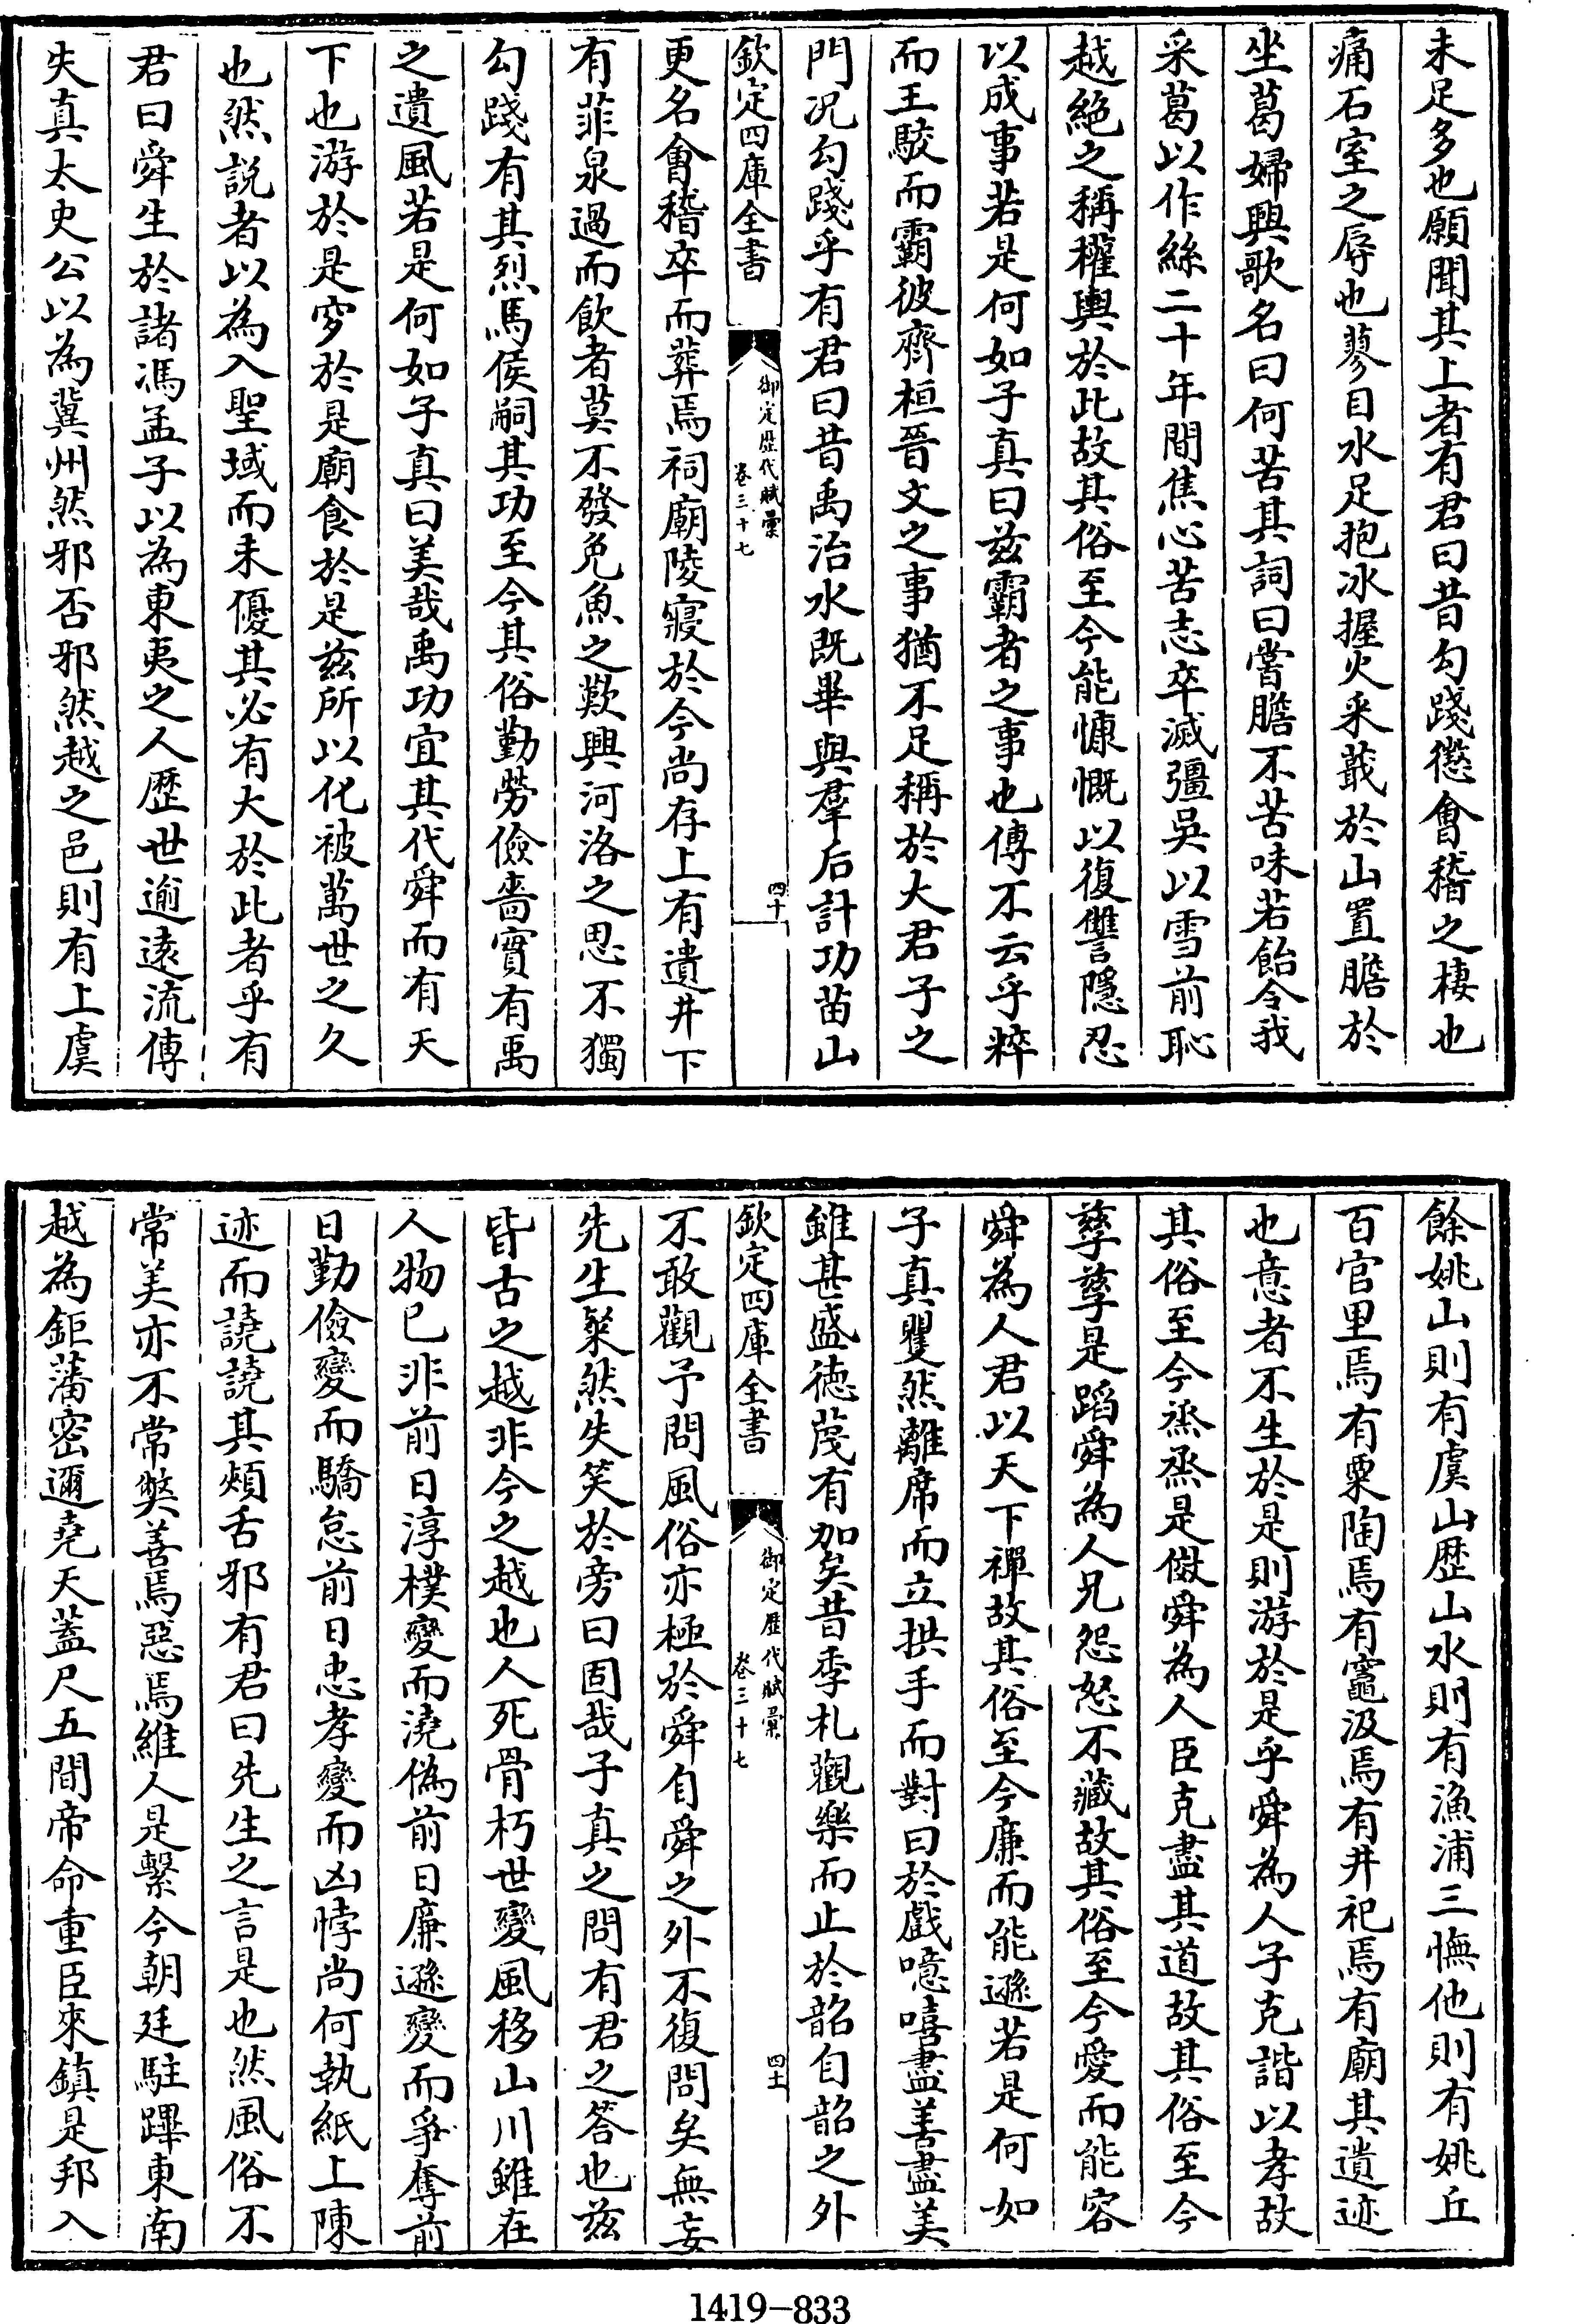 未足多也願聞其上者有君曰昔勾踐懲會稽之棲也
痛石室之辱也蓼目水足抱冰握火采蕺於山置膽於
坐葛婦興歌名曰何苦其詞曰嘗膽不苦味若飴令我
采葛以作絲二十年間焦心苦志卒滅彊吳以雪前恥
越絶之稱權輿於此故其俗至今能慷慨以復讐隱忍
以成事若是何如子真曰兹霸者之事也傳不云乎粹
而王駮而霸彼齊桓晉文之事猶不足稱於大君子之
門况勾踐乎有君曰昔禹治水既畢與羣后計功苗山
欽定四庫全書
御定歴代賦彚
卷三十七
四十
更名會稽卒而葬焉祠廟陵寢於今尚存上有遺井下
有菲泉過而飲者莫不發免魚之歎興河洛之思不獨
勾踐有其烈馬侯嗣其功至今其俗勤勞儉嗇實有禹
之遺風若是何如子真曰美哉禹功宜其代舜而有天
下也游於是穸於是廟食於是兹所以化被萬世之久
也然説者以為入聖域而未優其必有大於此者乎有
君曰舜生於諸馮孟子以為東夷之人歴世逾遠流傳
失真太史公以為冀州然邪否邪然越之邑則有上虞
餘姚山則有虞山歴山水則有漁浦三憮他則有姚丘
百官里焉有粟陶焉有竈汲焉有井祀焉有廟其遺迹
也意者不生於是則游於是乎舜為人子克諧以孝故
其俗至今烝烝是傚舜為人臣克盡其道故其俗至今
孳孳是蹈舜為人兄怨怒不藏故其俗至今愛而能容
舜為人君以天下禪故其俗至今廉而能遜若是何如
子真瞿然離席而立拱手而對曰於戲噫嘻盡善盡美
雖甚盛徳蔑有加矣昔季札觀樂而止於韶自韶之外
欽定四庫全書
御定歴代賦彚
卷三十七
四十一
不敢觀予問風俗亦極於舜自舜之外不復問矣無妄
先生粲然失笑於旁曰固哉子真之問有君之答也兹
皆古之越非今之越也人死骨朽世變風移山川雖在
人物已非前日淳樸變而澆偽前日廉遜變而爭奪前
日勤儉變而驕怠前日忠孝變而凶悖尚何執紙上陳
迹而譊譊其頰舌邪有君曰先生之言是也然風俗不
常美亦不常獘善焉惡焉維人是繫今朝廷駐蹕東南
越為鉅藩密邇堯天蓋尺五間帝命重臣來鎮是邦入
1419-833